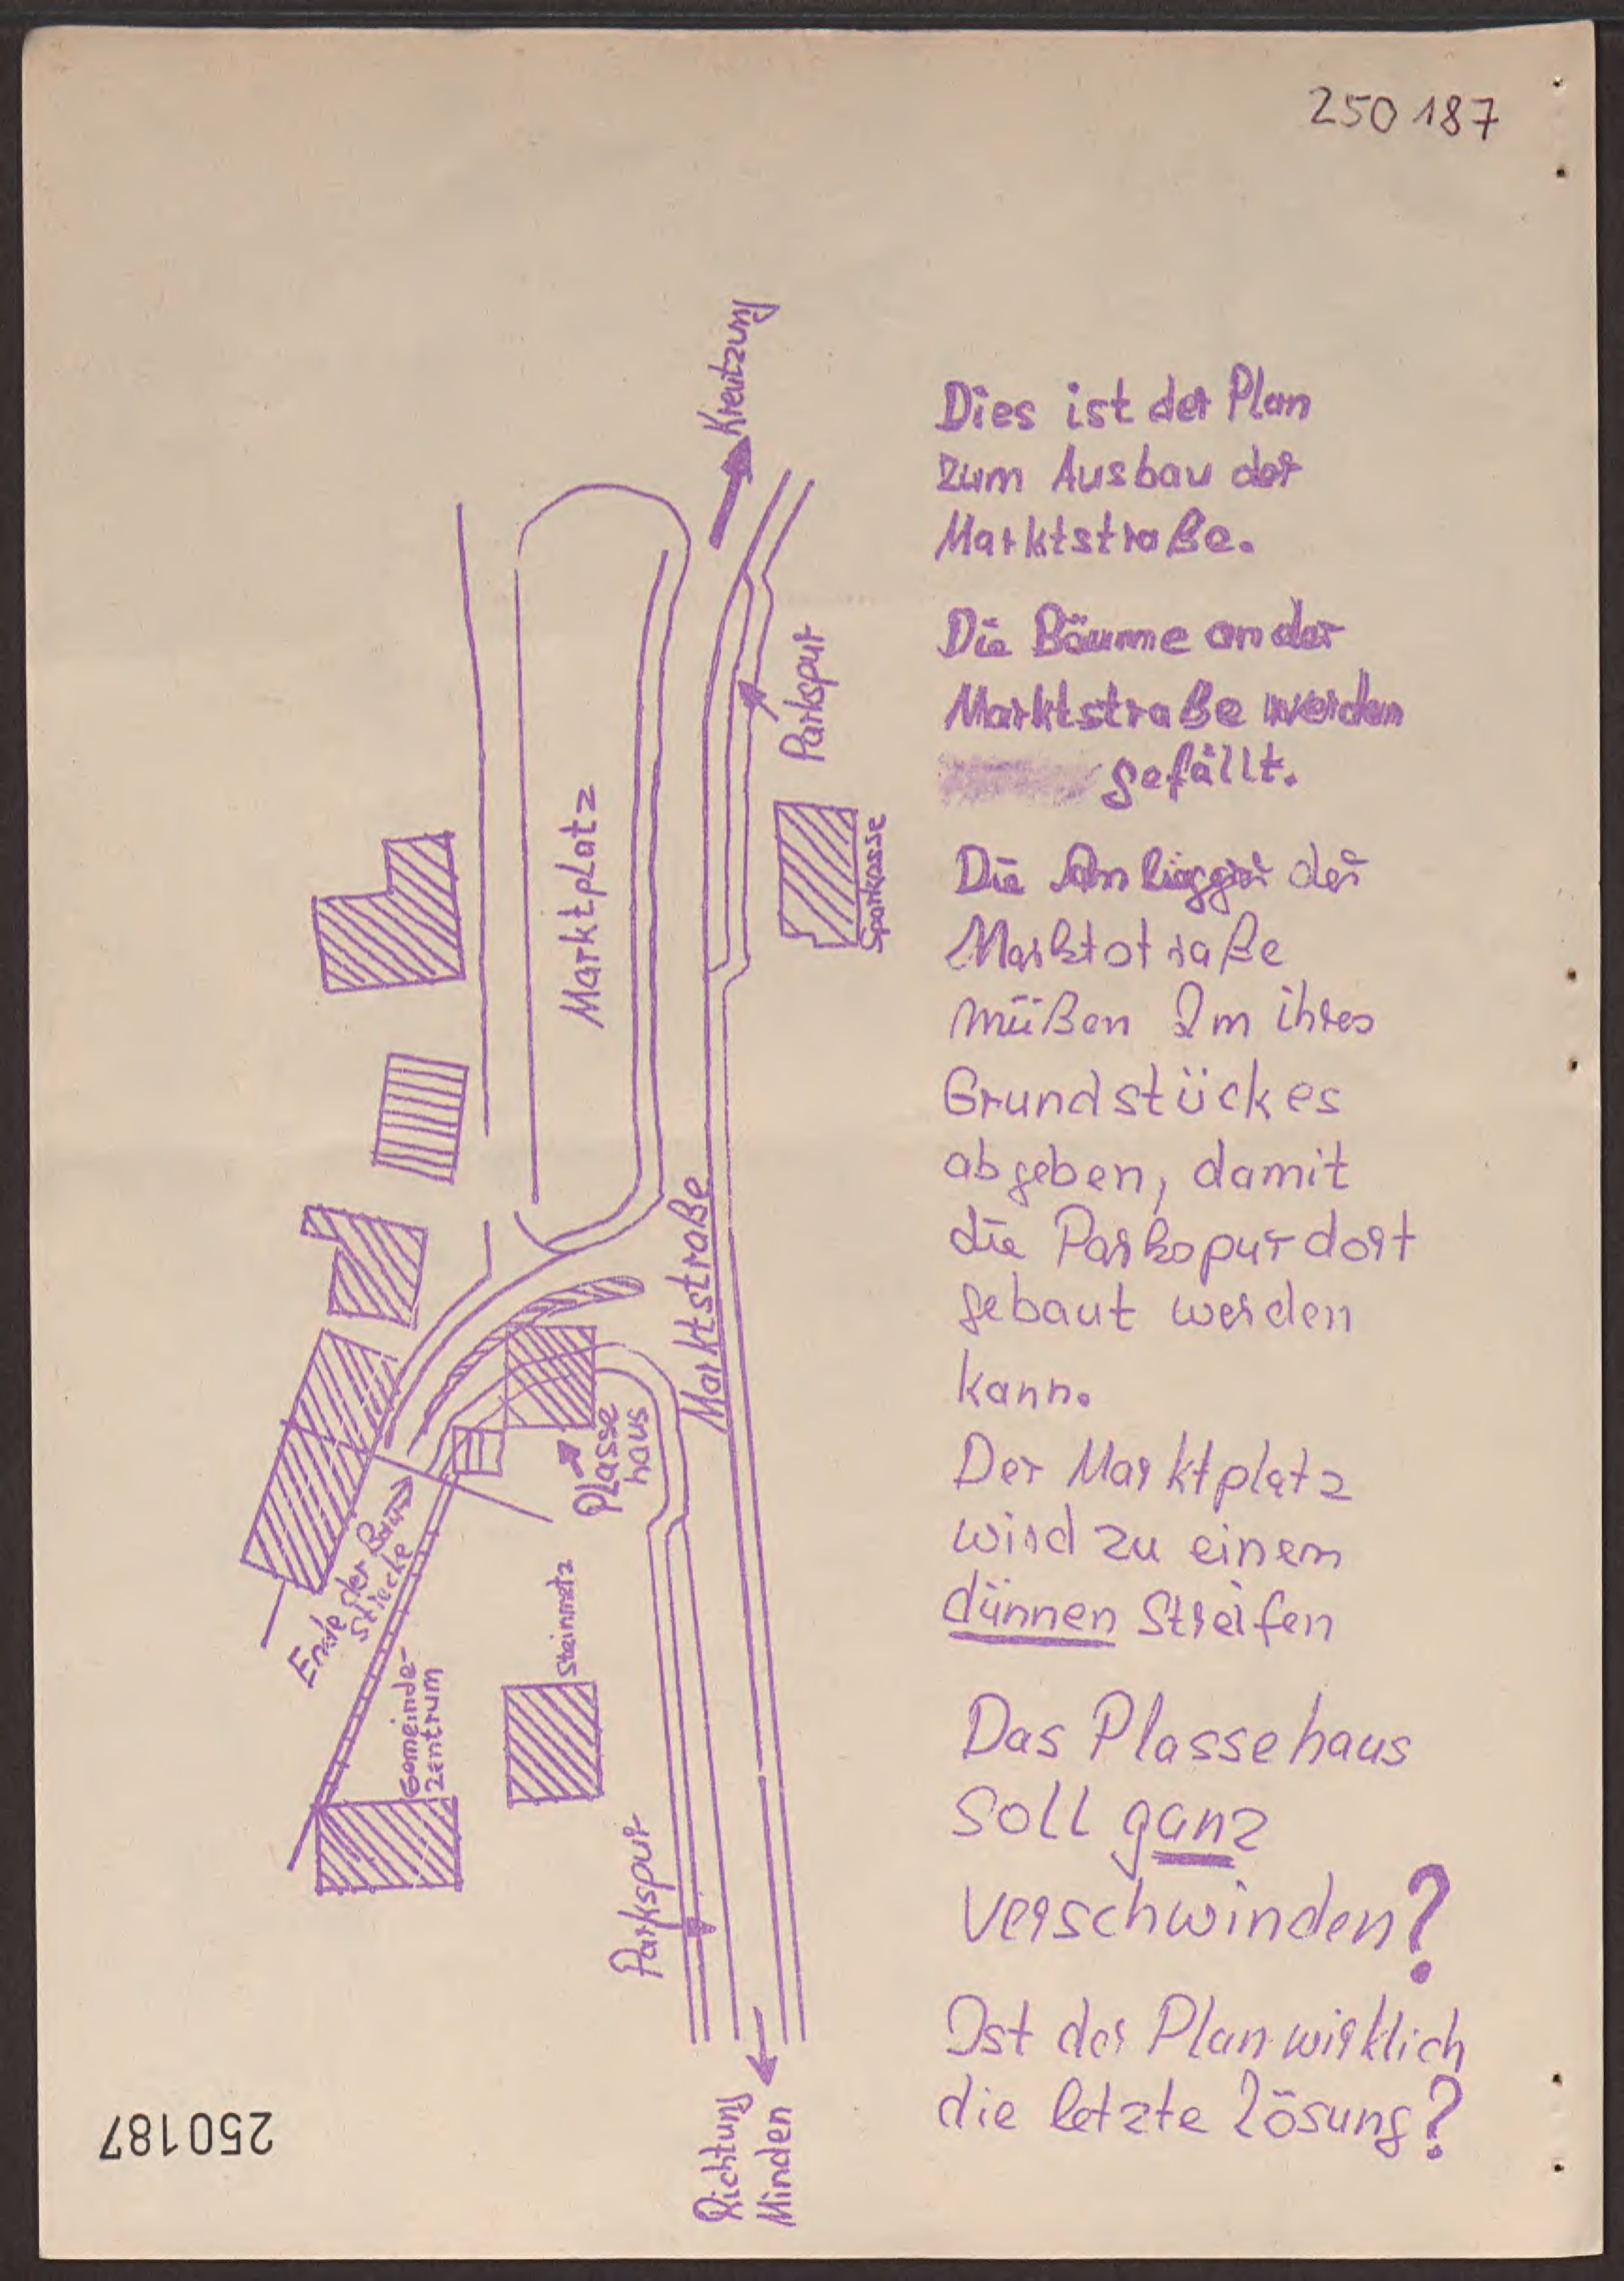 250 187
Kreutzung
Parkspur
Marktplatz
Sparkasse
Marktstraße
Plasse
haus
Ende der Bau
strecke
Steinmetz
Gemeinde-
Zentrum
Parkspur
Richtung
Minden
Dies ist der Plan
zum Ausbau der
Marktstraße.
Die Bäume an der
Marktstraße werden
gefällt.
Die Anliegger der
Marktstraße
müßen 2m ihres
Grundstückes
abgeben, damit
die Parkspur dort
gebaut werden
kann.
Der Marktplatz
wird zu einem
dünnen Streifen
Das Plassehaus
soll ganz
verschwinden?
Ist der Plan wirklich
die letzte Lösung?
250187